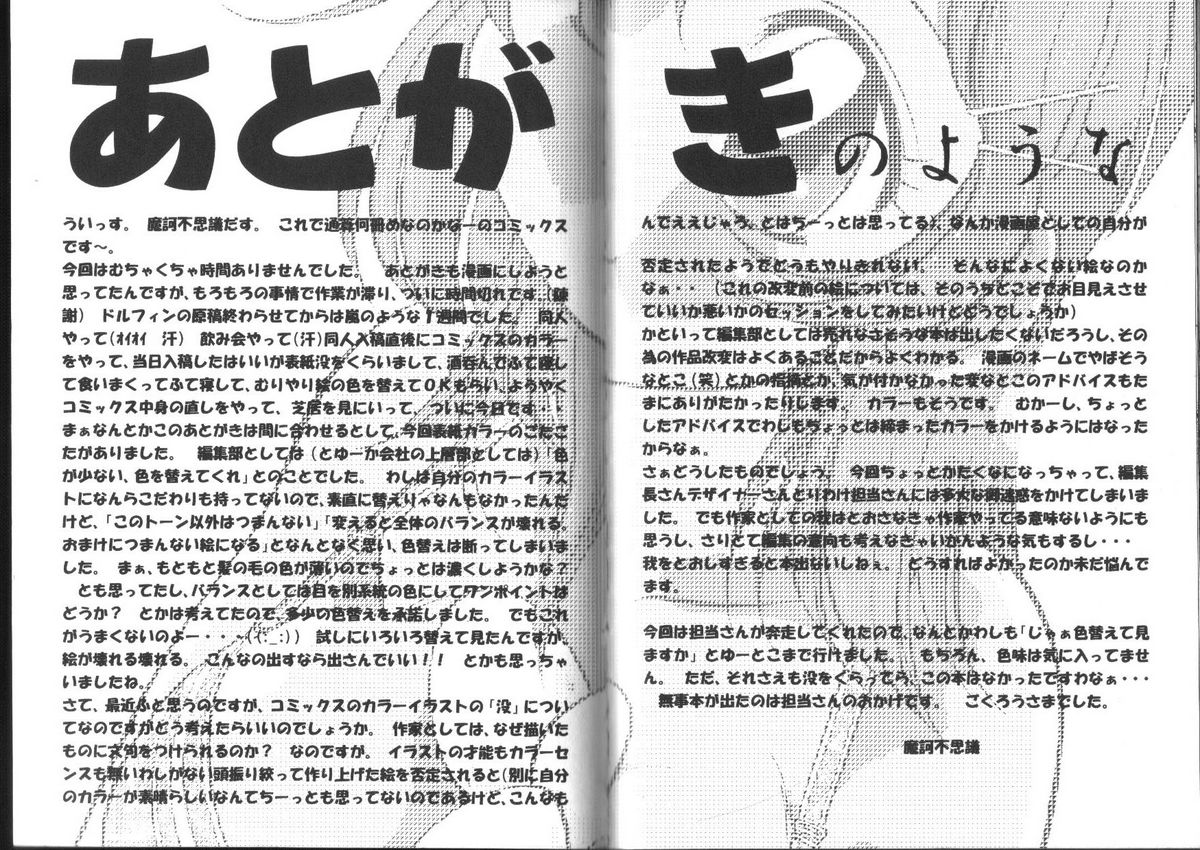 あとがきのような
ういっす。 魔訶不思議だす。 これで通算何冊めなのかなーのコミックス
です〜。
今回はむちゃくちゃ時間ありませんでした。 あとがきも漫画にしようと
思ってたんですが、もろもろの事情で作業が滞り、ついに時間切れです。(陳
謝) ドルフィンの原稿終わらせてからは嵐のような1週間でした。 同人
やって(オイオイ 汗) 飲み会やって(汗)同人入稿直後にコミックスのカラー
をやって、当日入稿したはいいが表紙没をくらいまして、酒呑んでふて寝し
て食いまくってふて寝して、むりやり絵の色を替えてOKもらい、ようやく
コミックス中身の直しをやって、芝居を見にいって、ついに今日です・・・
まぁなんとかこのあとがきは間に合わせるとして、今回表紙カラーのごたご
たがありました。 編集部としては(とゆーか会社の上層部としては)「色
が少ない、色を替えてくれ」とのことでした。 わしは自分のカラーイラス
トになんらこだわりも持ってないので、素直に替えりゃなんもなかったんだ
けど、「このトーン以外はつまんない」「変えると全体のバランスが壊れる。
おまけにつまんない絵になる」となんとなく思い、色替えは断ってしまいま
した。 まぁ、もともと髪の毛の色が薄いのでちょっとは濃くしようかな?
とも思ってたし、バランスとしては目を別系統の色にしてワンポイントは
どうか? とかは考えてたので、多少の色替えを承諾しました。 でもこれ
がうまくないのよー・・・~(('_;)) 試しにいろいろ替えて見たんですが、
絵が壊れる壊れる。 こんなの出すなら出さんでいい!! とかも思っちゃ
いましたね。
さて、最近ふと思うのですが、コミックスのカラーイラストの「没」につい
てなのですがどう考えたらいいのでしょうか。 作家としては、なぜ描いた
ものに文句をつけられるのか? なのですが。 イラストの才能もカラーセ
ンスも無いわしがない頭振り絞って作り上げた絵を否定されると(別に自分
のカラーが素晴らしいなんてちーっとも思ってないのであるけど、こんなも
んでええじゃろ。とはちーっとは思ってる)、なんか漫画屋としての自分が
否定されたようでどうもやりきれない。 そんなによくない絵なのか
なぁ・・ (これの改変前の絵については、そのうちどこぞでお目見えさせ
ていいか悪いかのセッションをしてみたいけどどうでしょうか)
かといって編集部としては売れなさそうな本は出したくないだろうし、その
為の作品改変はよくあることだからよくわかる。 漫画のネームでやばそう
なとこ(笑)とかの指摘とか、気が付かなかった変なとこのアドバイスもた
まにありがたかったりします。 カラーもそうです。 むかーし、ちょっと
したアドバイスでわしもちょっとは締まったカラーをかけるようにはなった
からなぁ。
さぁどうしたものでしょう。 今回ちょっとかたくなになっちゃって、編集
長さんデザイナーさんとりわけ担当さんには多大な御迷惑をかけてしまいま
した。 でも作家としての我はとおさなきゃ作家やってる意味ないようにも
思うし、さりとて編集の意向も考えなきゃいかんような気もするし・・・
我をとおしすぎると本出ないしねぇ。 どうすればよかったのか未だ悩んで
ます。
今回は担当さんが奔走してくれたので、なんとかわしも「じゃぁ色替えて見
ますか」とゆーとこまで行けました。 もちろん、色味は気に入ってませ
ん。 ただ、それさえも没をくらってら、この本はなかったですわなぁ・・・
無事本が出たのは担当さんのおかげです。 ごくろうさまでした。
魔訶不思議